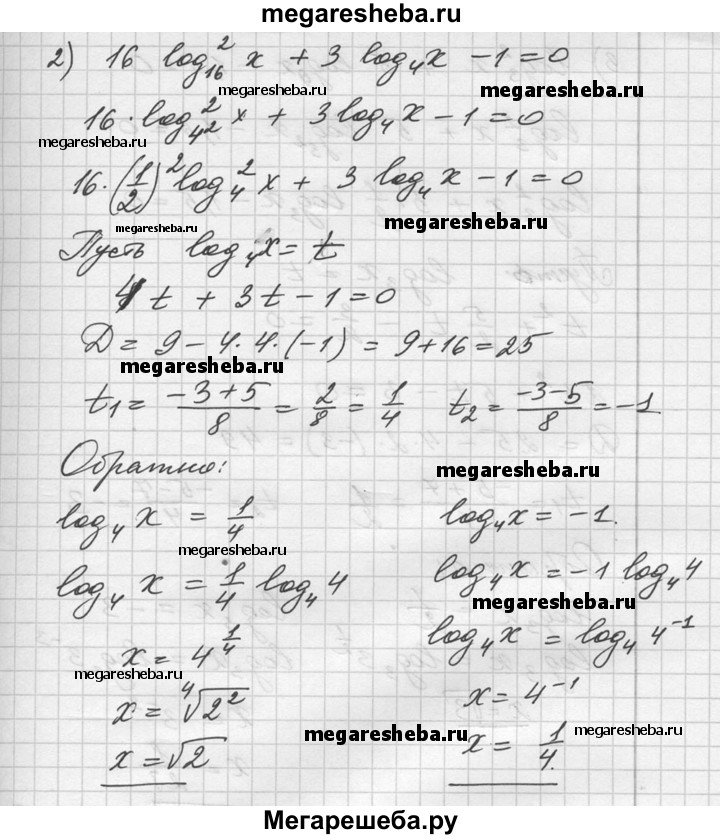 megaresheba.ru
2) 16 log₁₆² x + 3 log₄x − 1 = 0
megaresheba.ru
16 · log²₄² x + 3 log₄ x − 1 = 0
megaresheba.ru
16 · (1/2)² log₄² x + 3 log₄ x − 1 = 0
megaresheba.ru
megaresheba.ru
Пусть log₄x = t
4t + 3t − 1 = 0
D = 9 − 4 · 4 · (−1) = 9 + 16 = 25
megaresheba.ru
t₁ = (−3+5)/8 = 2/8 = 1/4 t₂ = (−3−5)/8 = −1
Обратно:
megaresheba.ru
log₄ x = 1/4 log₄x = −1.
megaresheba.ru
log₄ x = 1/4 log₄ 4 log₄x = −1 log₄4
megaresheba.ru
x = 4^(1/4) log₄x = log₄ 4⁻¹
megaresheba.ru
x = ⁴√2² x = 4⁻¹
megaresheba.ru
x = √2 x = 1/4.
megaresheba.ru
Мегарешеба.ру